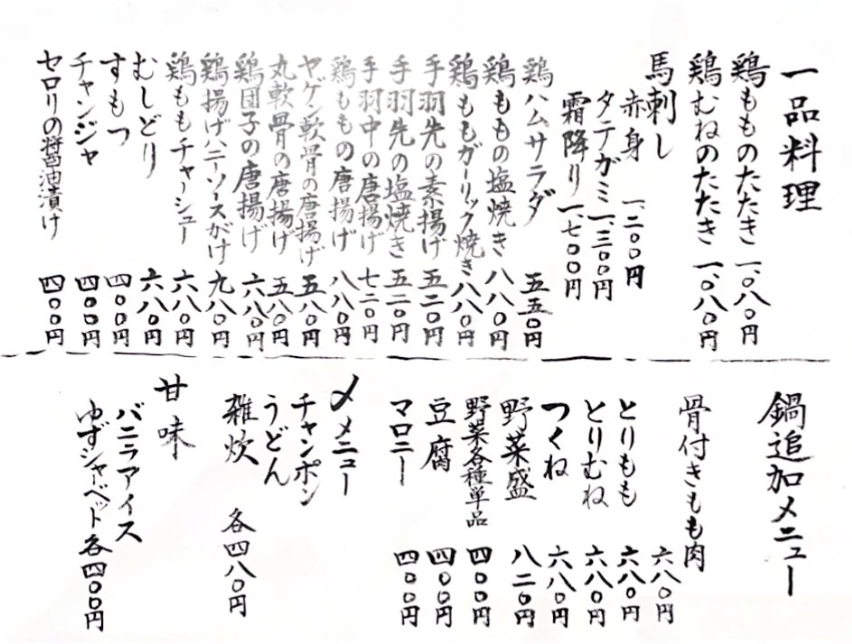 一品料理
鶏もものたたき 一、〇八〇円
鶏むねのたたき 一、〇八〇円
馬刺し
赤身 一、二〇〇円
タテガミ 一、三〇〇円
霜降り 一、七〇〇円
鶏ハムサラダ 五五〇円
鶏ももの塩焼き 八八〇円
鶏ももガーリック焼き 八八〇円
手羽先の素揚げ 五二〇円
手羽先の塩焼き 五二〇円
手羽中の唐揚げ 七二〇円
鶏ももの唐揚げ 八八〇円
ヤゲン軟骨の唐揚げ 五八〇円
丸軟骨の唐揚げ 五八〇円
鶏団子の唐揚げ 六八〇円
鶏揚げハニーソースがけ 九八〇円
鶏ももチャーシュー 六八〇円
むしどり 六八〇円
すもつ 四〇〇円
チャンジャ 四〇〇円
セロリの醤油漬け 四〇〇円
鍋追加メニュー
骨付きもも肉 六八〇円
とりもも 六八〇円
とりむね 六八〇円
つくね 六八〇円
野菜盛 八二〇円
野菜各種単品 四〇〇円
豆腐 四〇〇円
マロニー 四〇〇円
〆メニュー
チャンポン
うどん
雑炊 各四八〇円
甘味
バニラアイス
ゆずシャーベット 各四〇〇円